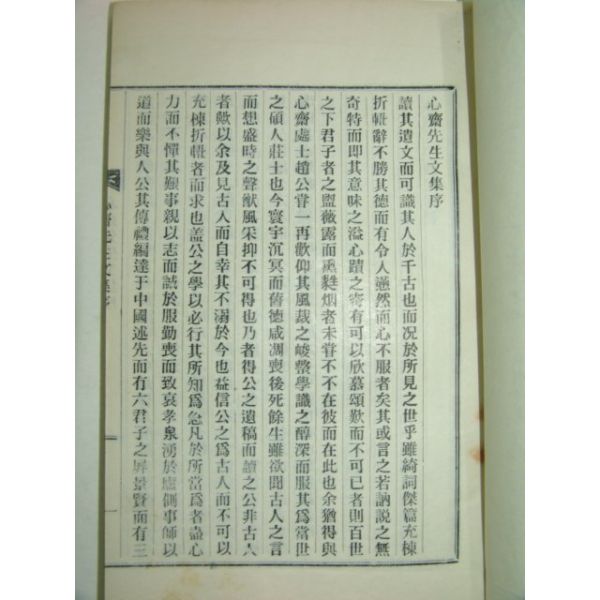 心齋先生文集序
讀其遺文而可識其人於千古也而况於所見之世乎雖綺詞傑篇充棟
折軸辭不勝其德而有令人邈然而心不服者矣其或言之若訥説之無
奇特而即其意味之溢心蹟之寄有可以欣慕頌歎而不可已者則百世
之下君子者之盥薇露而爇烟者未甞不不在彼而在此也余猶得與
心齋處士趙公甞一再歡仰其風裁之峻整學識之醇深而服其爲當世
之碩人莊士也今寰宇沉冥而舊德咸凋喪後死餘生雖欲聞古人之言
而想盛時之聲猷風采抑不可得也乃者得公之遺稿而讀之公非古人
者歟以余及見古人而自幸其不溺於今也益信公之爲古人而不可以
充棟折軸者而求也盖公之學以必行其所知爲急凡於所當爲者盡心
力而不憚其艱事親以志而誠於服勤喪而致哀孝泉湧於廬側事師以
道而樂與人公其傳禮編達于中國述先而有六君子之屏景賢而有三
心齋先生文集序